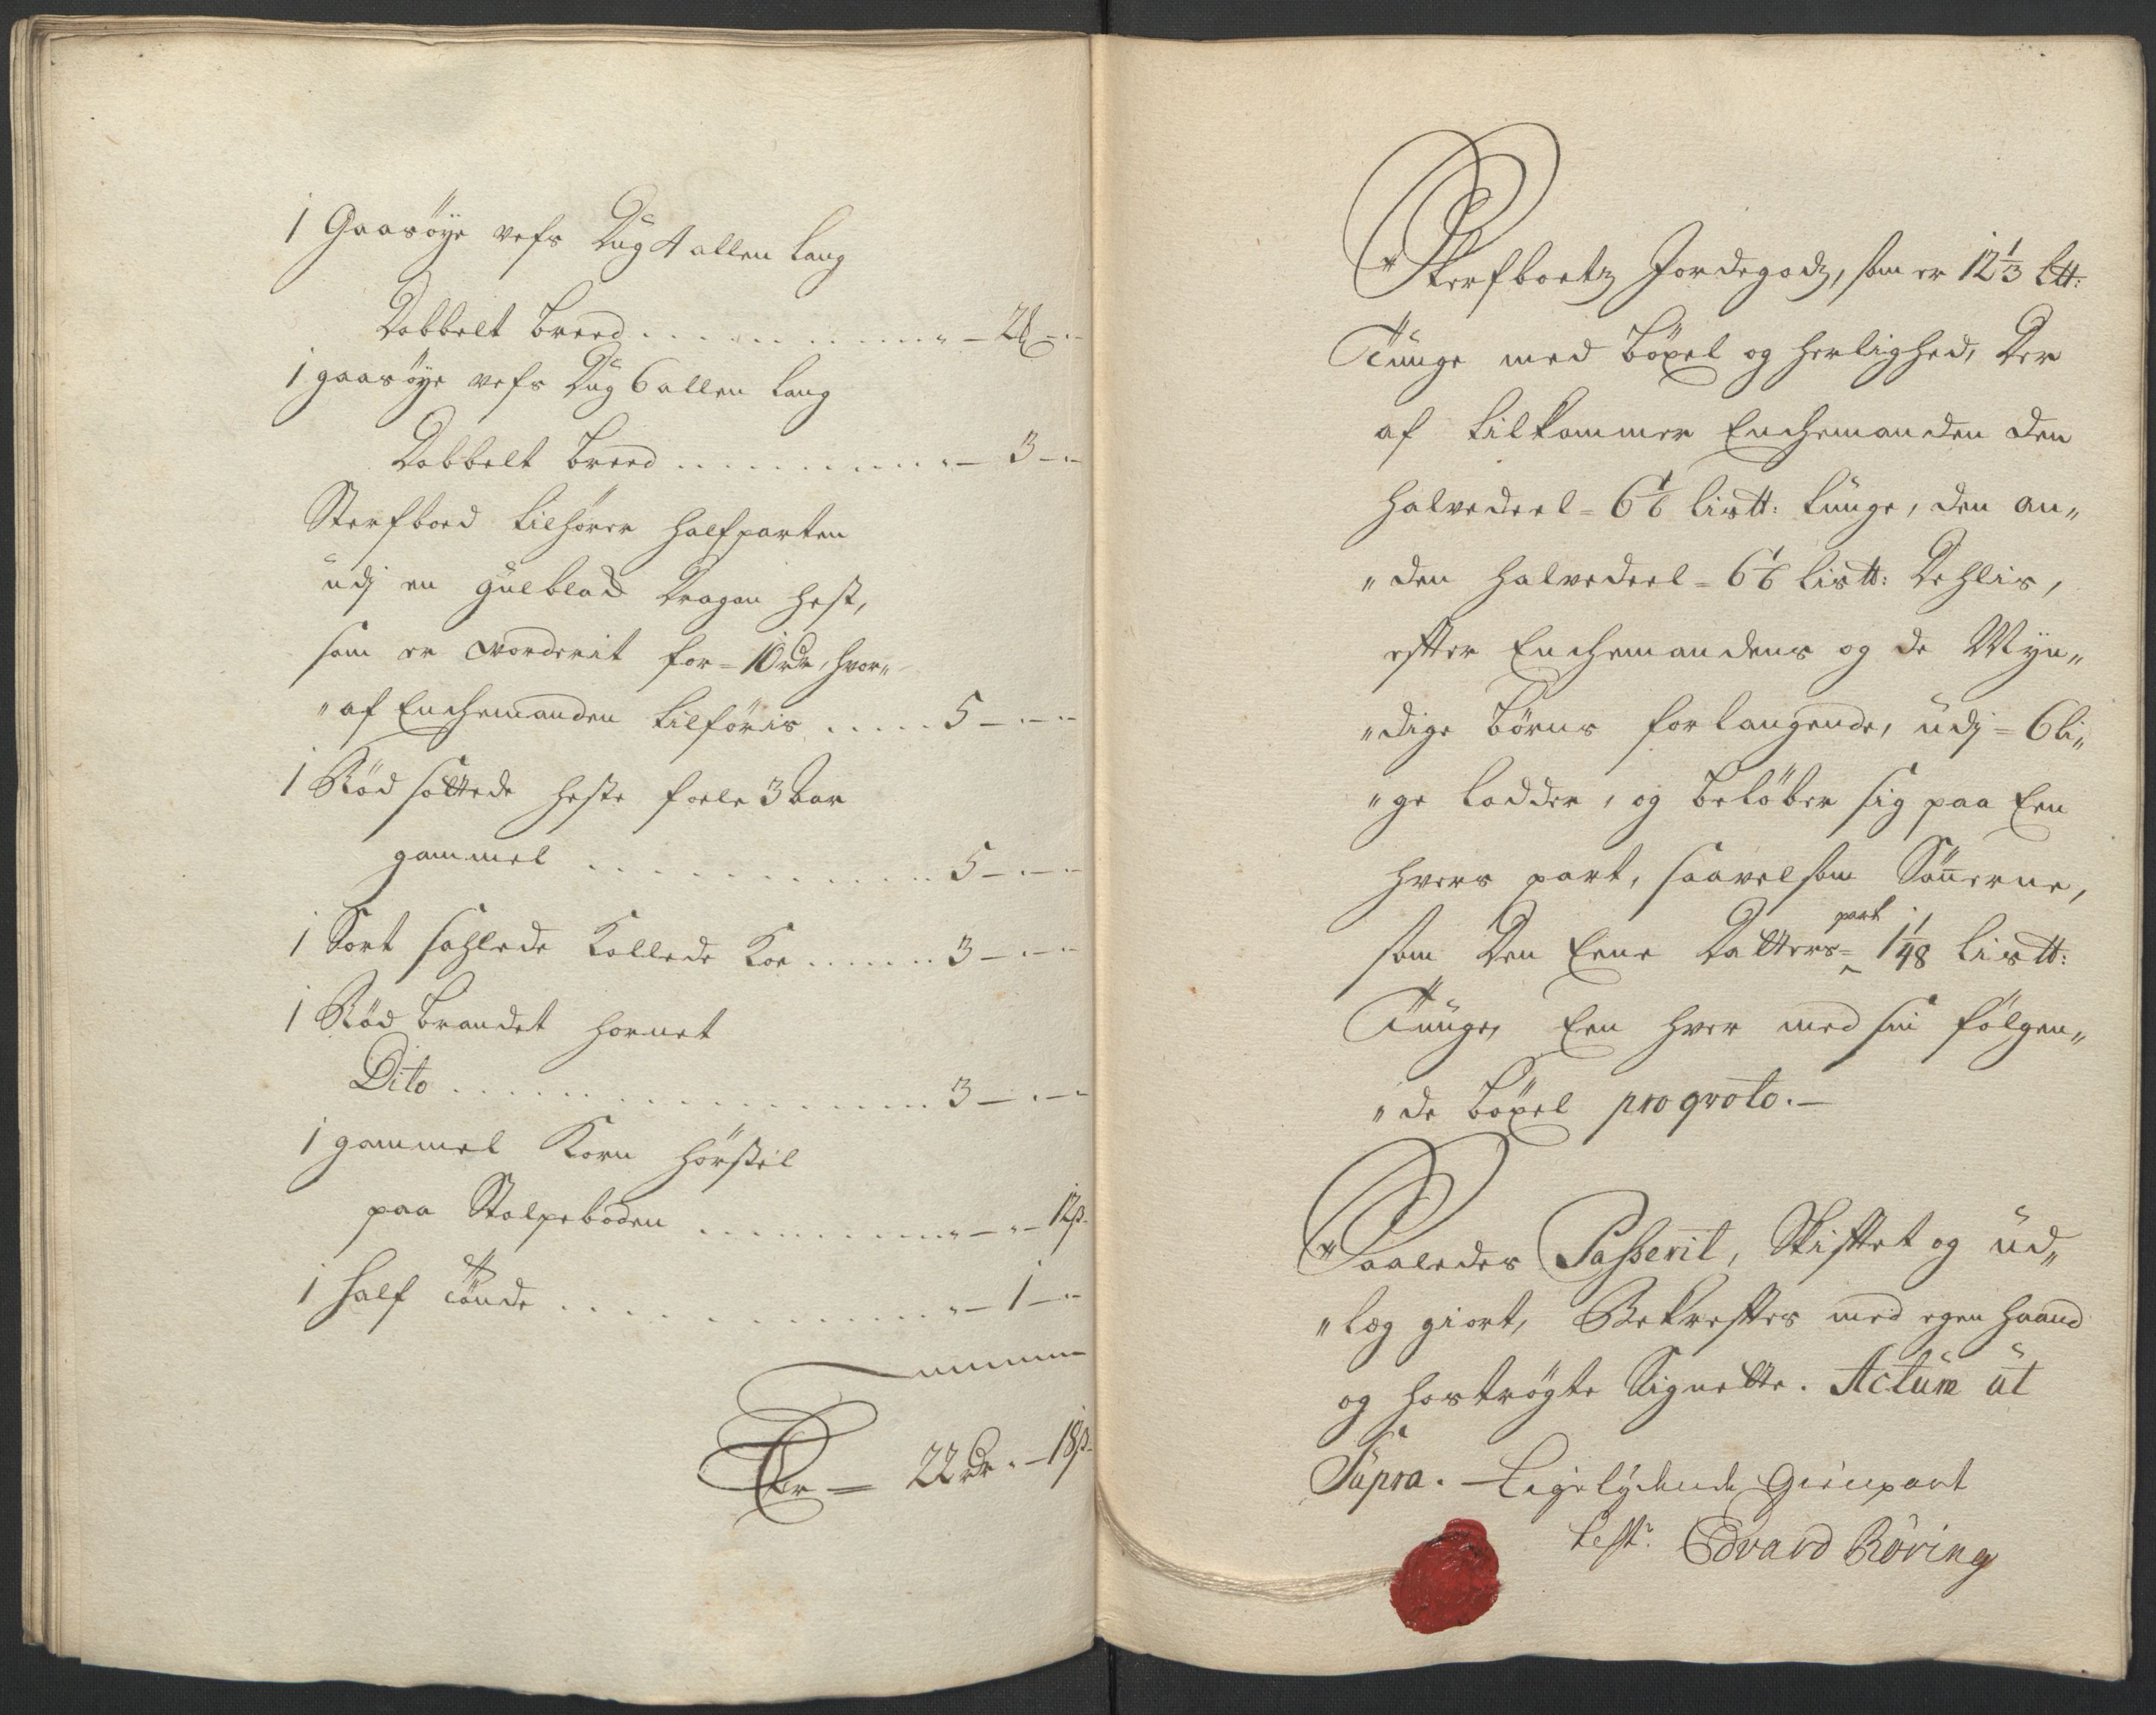 1 Gaasöÿe vefs Dug 4 allen lang
Dobbelt breed . . . . . . . . . . . - 2 - . -
1 gaasöÿe vefs Dug 6 allen lang
Dobbelt breed . . . . . . . . . . - 3 - . -
Sterfboed tilhörer halfparten
udj en gulblad Dragon hest,
som er vorderit for = 10 rdr, hvor„
„af Enchemanden tilföris . . . . . 5 - . - . -
1 Röd sottede heste foele 3 aar
gammel . . . . . . . . . . . . 5 - . - . -
1 Sort sohlede kollede Koe . . . . . . 3 - . - . -
1 Röd brandet hornet
Dito . . . . . . . . . . . . . . . . 3 - . - . -
1 gammel Korn hörsteil
paa Stolpeboden . . . . . . . . . . - . - 12 ß.
1 half tönde . . . . . . . . . . . . . - 1 - . -
Er = 22 rdr. - 18 ß.
Sterfboets Jordegods, som er 12 1/3 L℔:
Tunge med böxel og herlighed, Der
af tilkommer Enchemanden den
halvedeel = 6 1/6 Lis℔: tunge, den an„
„den halvedeel = 6 1/6 Lis℔: Dehlis,
effter Enchemandens og de Myn„
„dige börns forlangende, udj = 6 li„
„ge lodder, og belöber sig paa Een
hvers part, saavelsom Sönnerne,
som Den Eene Datters = part 1 1/48 Lis℔:
Tunge, Een hver med sin fölgen„
„de böxel pro qvoto. -
Saaledes Passerit, Skifftet og ud„
„læg giort, Bekrefftes med egen haand
og hoströgte Signette. Actum ut
Supra. - Ligelÿdende Gienpart
test: Edvard Röring